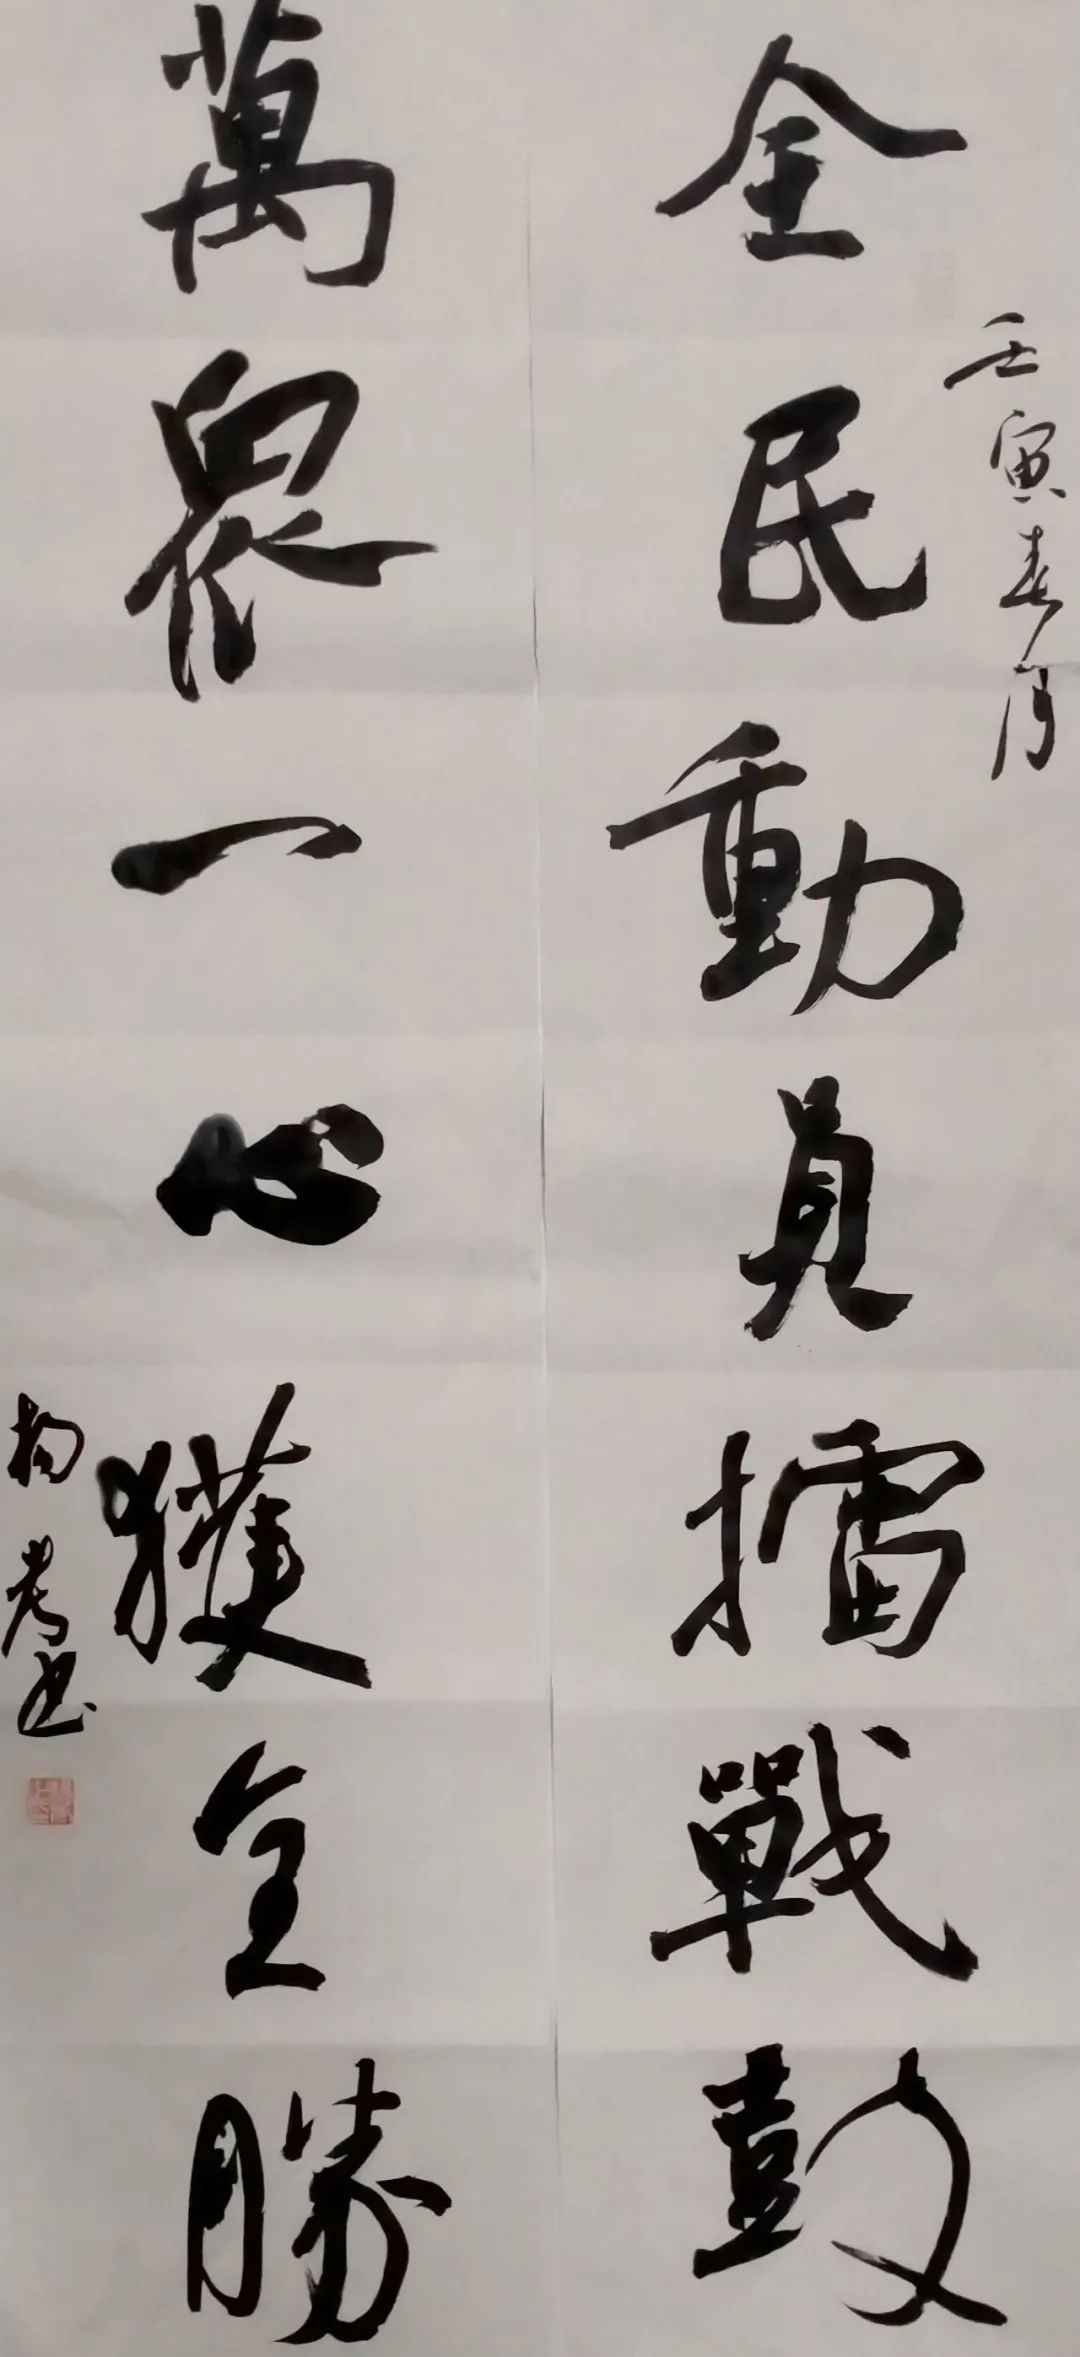 全民動員擂戰鼓
壬寅春月
萬眾一心獲全勝
書